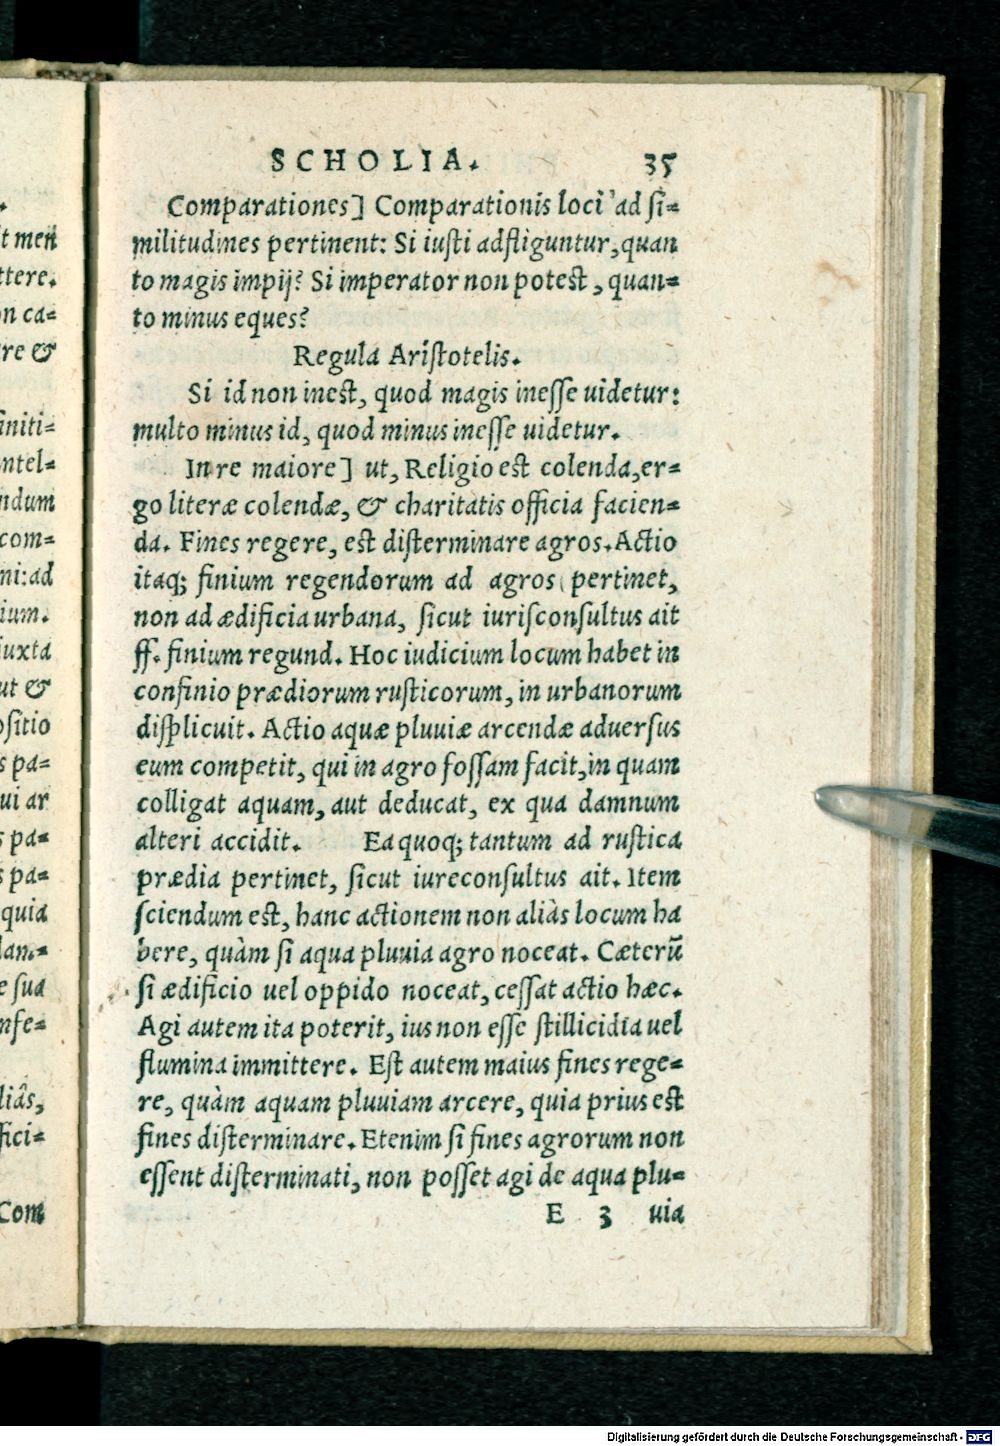 SCHOLIA. 35
Comparationes] Comparationis loci ad ſi=
militudines pertinent: Si iuſti adfliguntur, quan
to magis impij? Si imperator non poteſt, quan=
to minus eques?
Regula Ariſtotelis.
Si id non ineſt, quod magis ineſſe uidetur:
multo minus id, quod minus ineſſe uidetur.
In re maiore] ut, Religio eſt colenda, er=
go literæ colendæ, & charitatis officia facien=
da. Fines regere, eſt diſterminare agros. Actio
itaq; finium regendorum ad agros pertinet,
non ad ædificia urbana, ſicut iuriſconſultus ait
ff. finium regund. Hoc iudicium locum habet in
confinio prædiorum ruſticorum, in urbanorum
diſplicuit. Actio aquæ pluuiæ arcendæ aduerſus
eum competit, qui in agro foſſam facit, in quam
colligat aquam, aut deducat, ex qua damnum
alteri accidit. Ea quoq; tantum ad ruſtica
prædia pertinet, ſicut iureconſultus ait. Item
ſciendum eſt, hanc actionem non aliàs locum ha
bere, quàm ſi aqua pluuia agro noceat. Cæterū
ſi ædificio uel oppido noceat, ceſſat actio hæc.
Agi autem ita poterit, ius non eſſe ſtillicidia uel
flumina immittere. Eſt autem maius fines rege=
re, quàm aquam pluuiam arcere, quia prius eſt
fines diſterminare. Etenim ſi fines agrorum non
eſſent diſterminati, non poſſet agi de aqua plu=
E 3 uia
t men
ttere.
on ca=
re &
initi=
ntel=
ndum
com=
ni: ad
ium.
iuxta
ut &
oſitio
s pa=
ui ar
s pa=
s pa=
quia
lam=
e ſua
nfe=
liâs,
fici=
Com
Digitalisierung gefördert durch die Deutsche Forschungsgemeinschaft - DFG